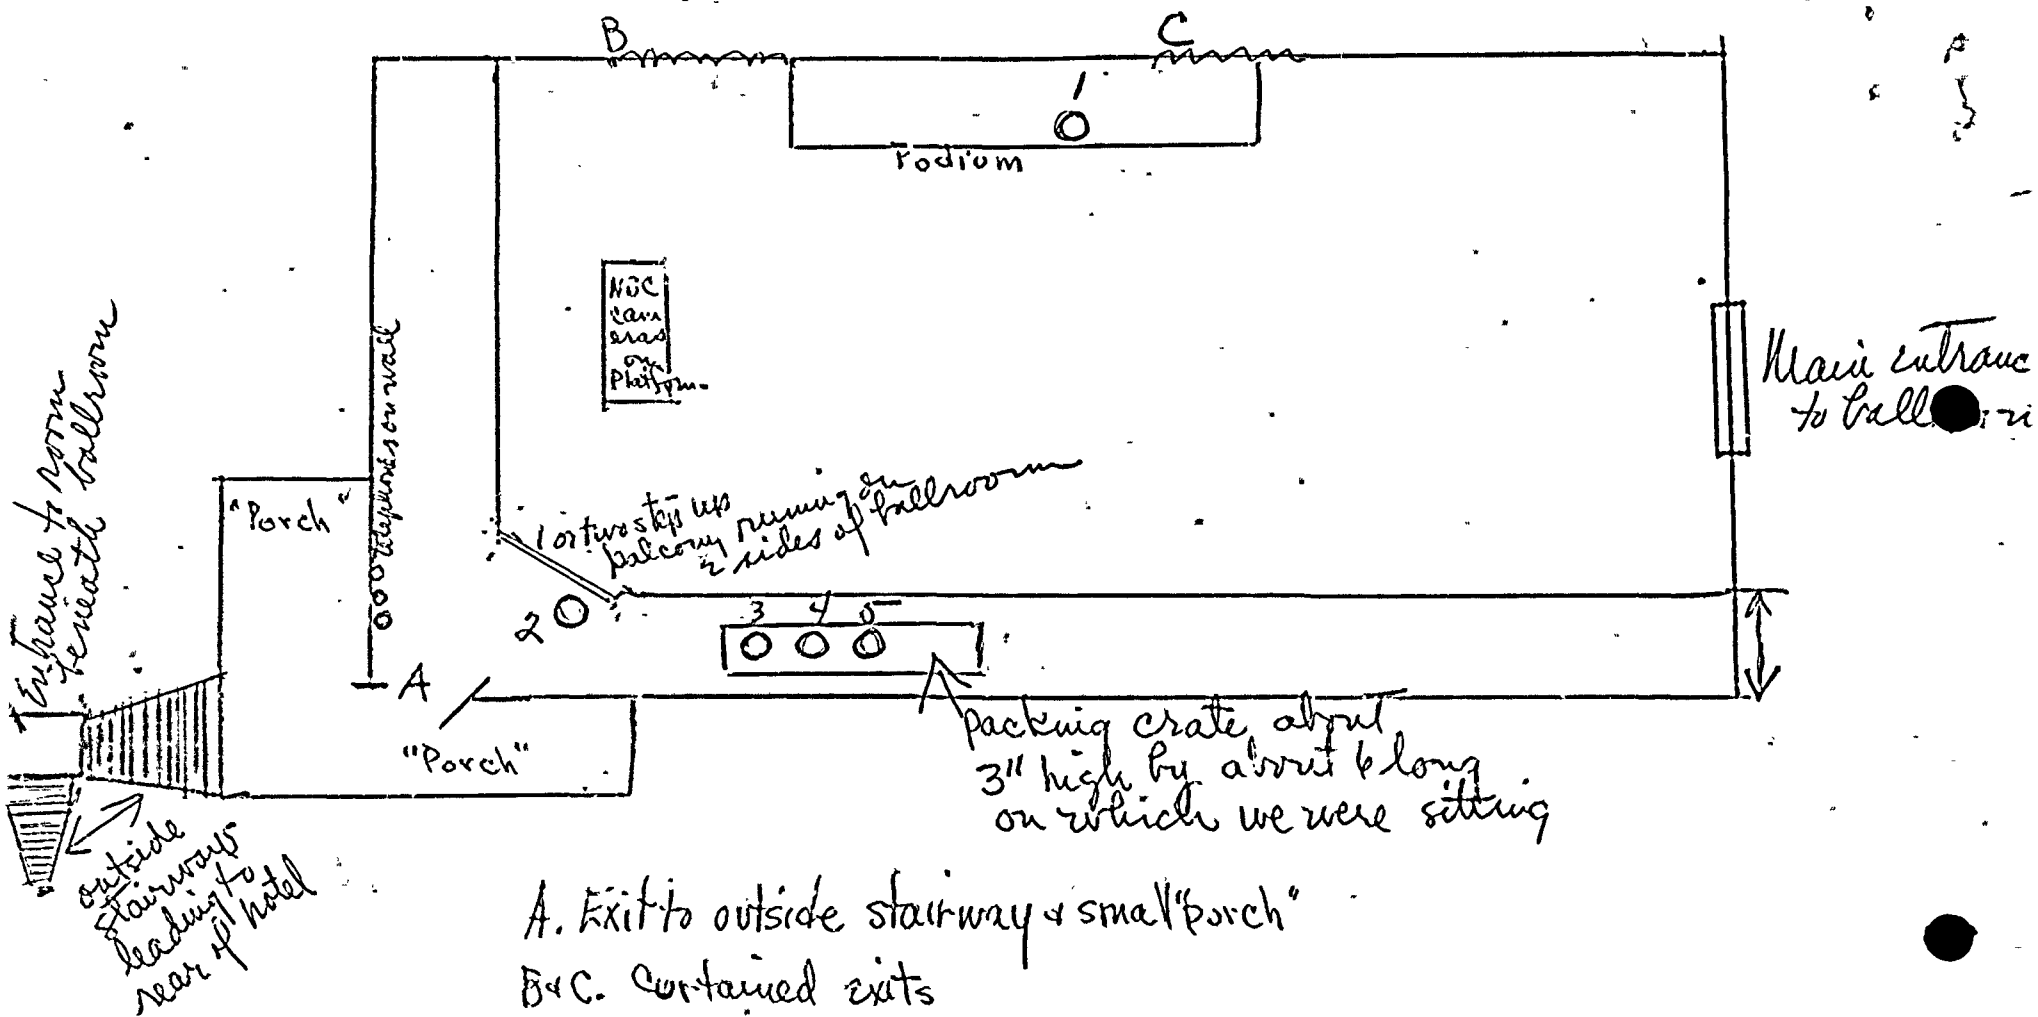 B
C
1
rodium
NBC
cam
eras
on
Platform
Main entranc
to ball
Telephones on wall
"Porch"
Entrance to room
beneath ballroom
1 or two step up
balcony running on
2 sides of ballroom
2
3 4 5
A
"Porch"
packing crate about
3" high by about 6 long
on which we were sitting
outside
stairways
leading to
rear of hotel
A. Exit to outside stairway & small "porch"
B&C. Curtained exits